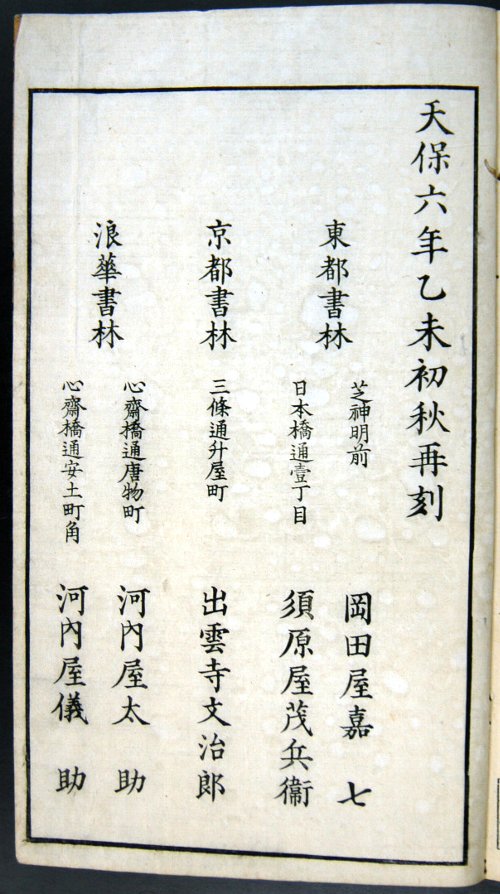 天保六年乙未初秋再刻
東都書林
芝神明前 岡田屋嘉七
日本橋通壹丁目 須原屋茂兵衞
京都書林
三條通升屋町 出雲寺文治郎
浪華書林
心齋橋通唐物町 河内屋太助
心齋橋通安土町角 河内屋儀助